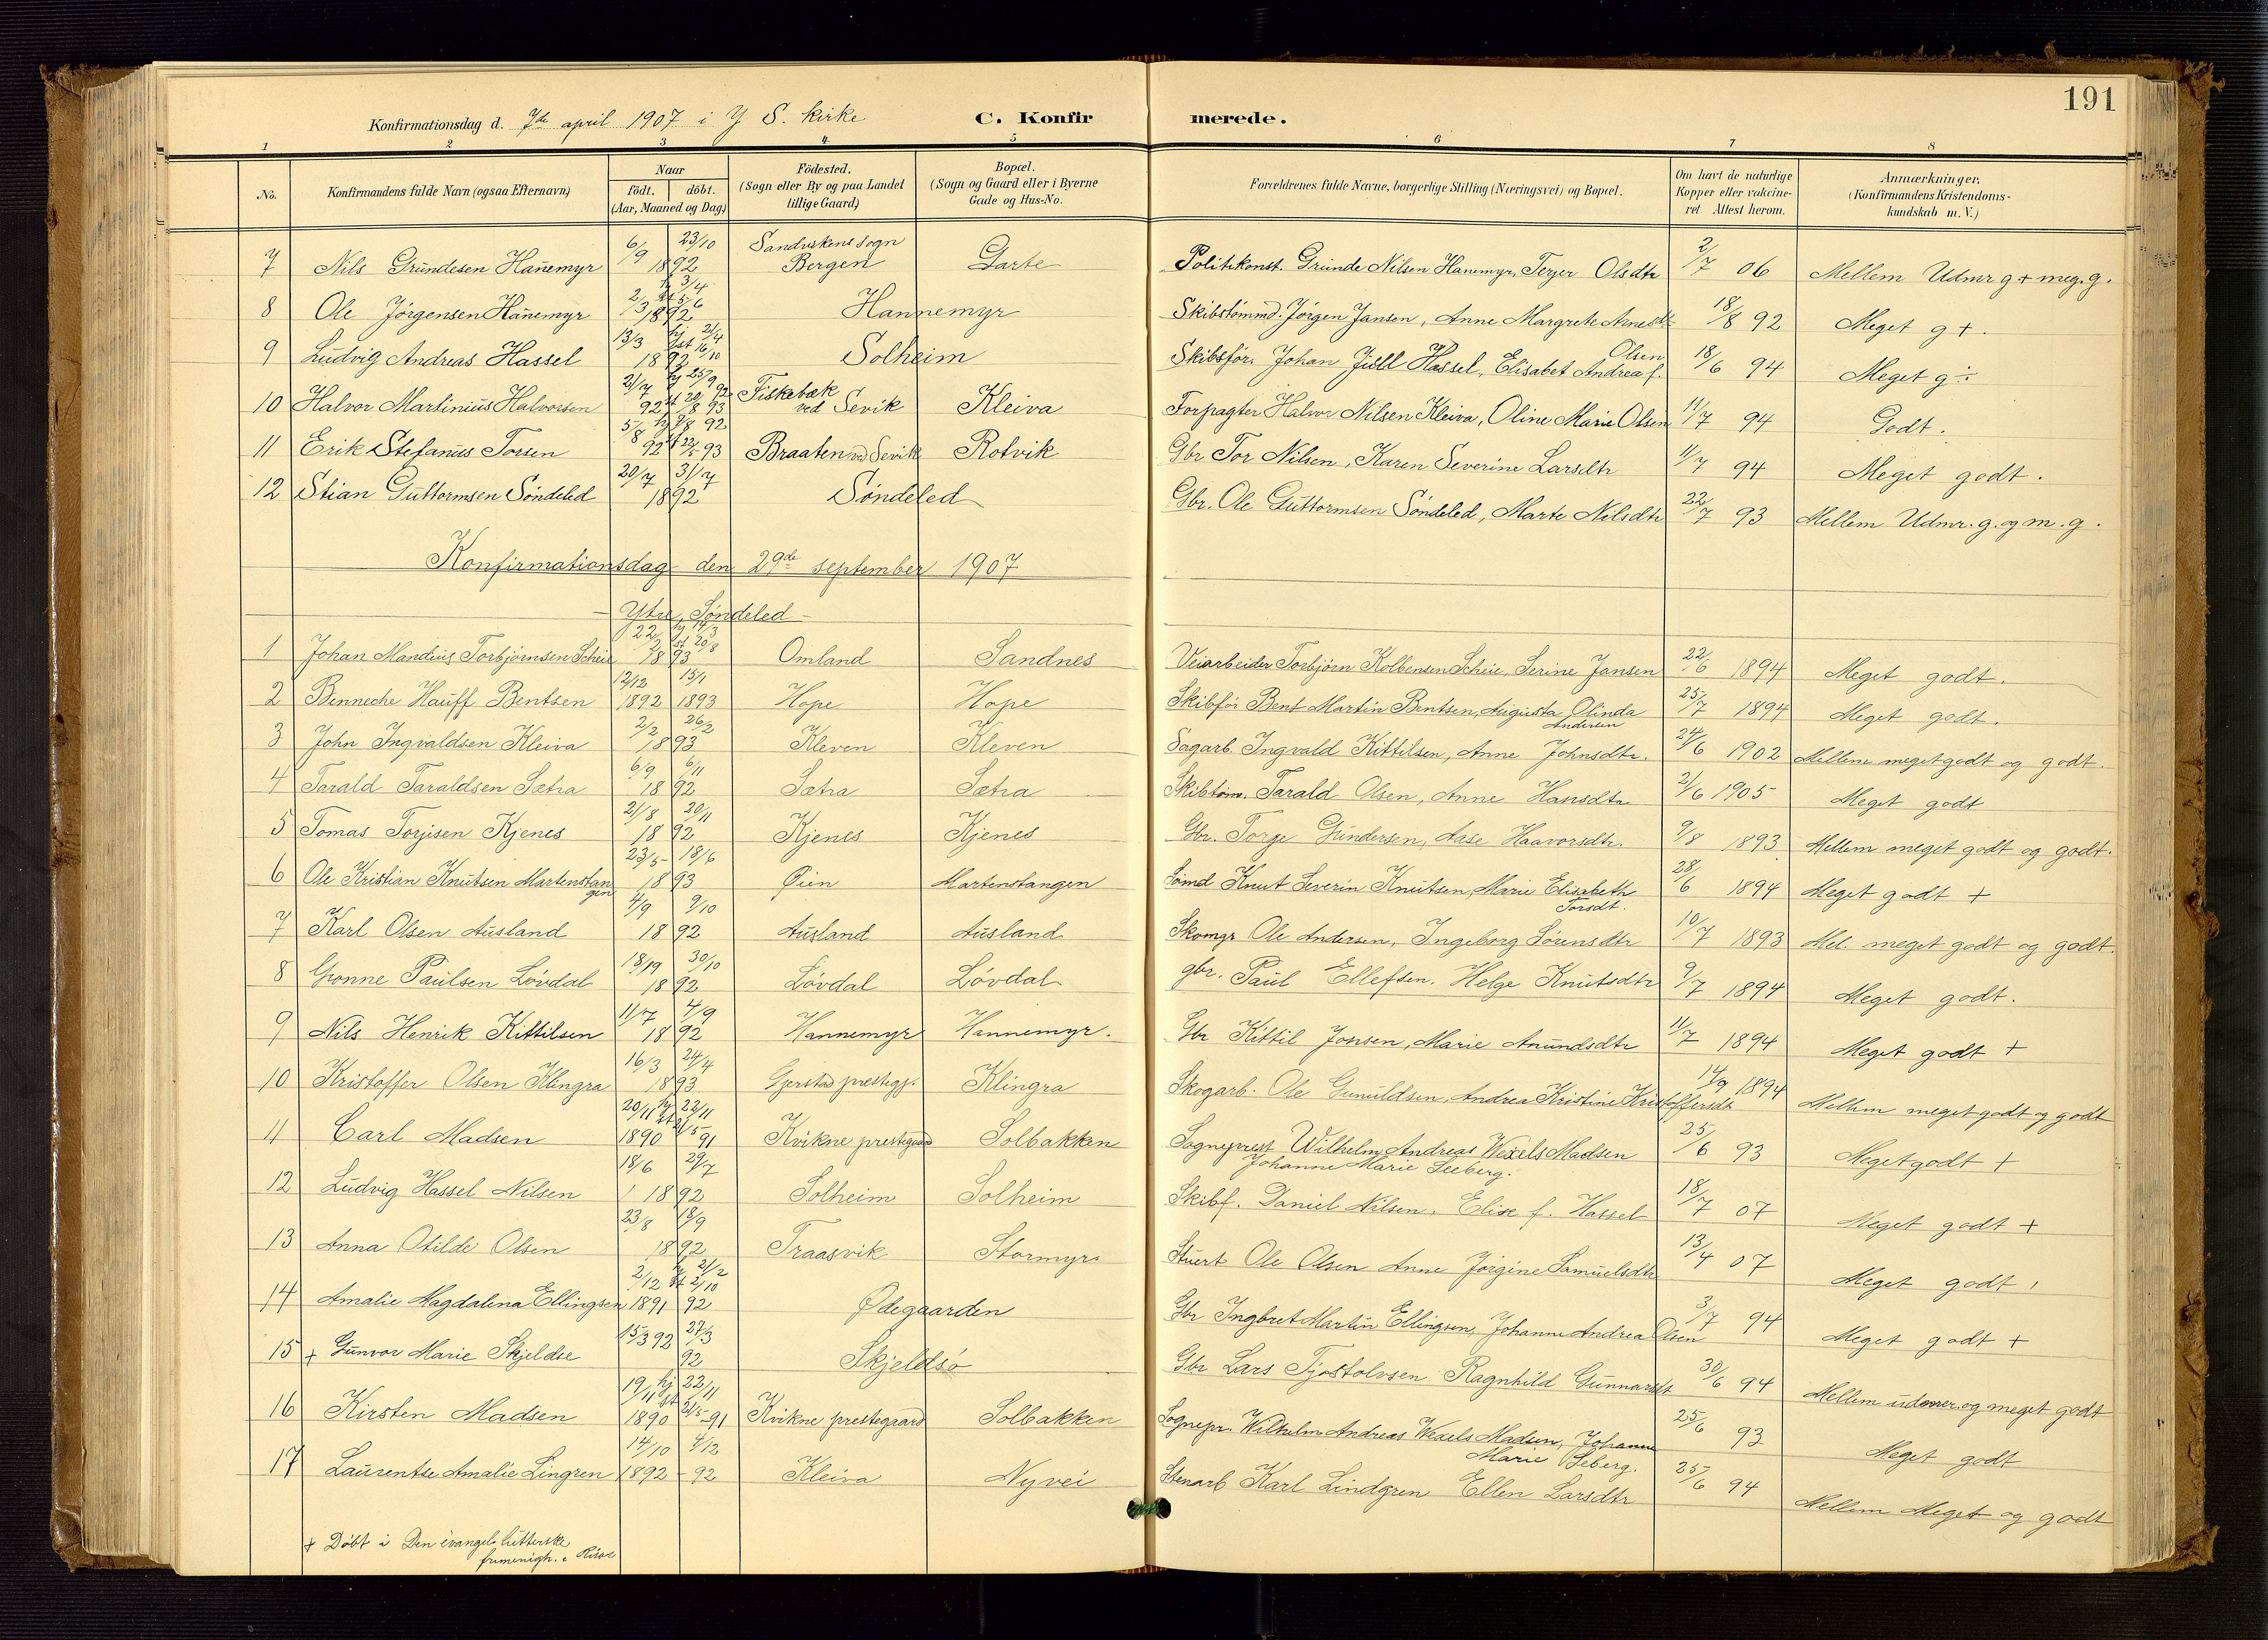 191
Konfirmationsdag d. 7de april 1907 i Y S. kirke C. Konfirmerede.
1 2 3 4 5 6 7 8
No. Konfirmandens fulde Navn (ogsaa Efternavn) Naar födt. döbt. (Aar, Maaned og Dag) Födested. (Sogn eller By og paa Landet tillige Gaard) Bopæl. (Sogn og Gaard eller i Byerne Gade og Hus-No. Forældrenes fulde Navne, borgerlige Stilling (Næringsvei) og Bopæl. Om havt de naturlige Kopper eller vakcineret Attest herom. Anmærkninger, (Konfirmandens Kristendomskundskab m. V.)
7 Nils Grundesen Hanemyr 6/9 23/10 1892 Sandvikens sogn Bergen Garte Politikonst. Grunde Nilsen Hanemyr, Terjer Olsdtr 2/7 06 Mellem Udmr g + meg. g.
8 Ole Jörgensen Hanemyr 2/3 hj 3/4 st 5/6 1892 Hannemyr Skibstömmd. Jörgen Jansen, Anne Margrete Arnesdtr 18/8 92 Meget g +.
9 Ludvig Andreas Hassel 13/3 hj 2/4 st 16/10 1892 Solheim Skibsför. Johan Jidll Hassel, Elisabet Andrea f. Olsen 18/6 94 Meget g ÷
10 Halvor Martinius Halvorsen 21/7 92 hj 25/9 92 st 20/8 93 Fiskebæk ved Sevik Kleiva Forpagter Halvor Nilsen Kleiva, Oline Marie Olsen 11/7 94 Godt.
11 Erik Stefanus Torsen 5/8 92 hj 7/8 92 st 22/5 93 Braaten ved Sevik Rotvik Gbr Tor Nilsen, Karen Severine Larsdtr 11/7 94 Meget godt.
12 Stian Guttormsen Söndeled 20/7 31/7 1892 Söndeled Gbr. Ole Guttormsen Söndeled, Marte Nilsdtr 22/7 93 Mellem Udmr. g. og m. g.
Konfirmationsdag den 29de september 1907
- Ytre Söndeled -
1 Johan Mandius Torbjörnsen Scheie 22/2 hj 14/3 st 20/8 1893 Omland Sandnes Veiarbeider Torbjörn Kolbensen Scheie, Serine Jansen 22/6 1894 Meget godt.
2 Benneche Hauff Bentsen 12/12 1892 15/1 1893 Hope Hope Skibför Bent Martin Bentsen, Augusta Olinda Andersen 25/7 1894 Meget godt.
3 John Ingvaldsen Kleiva 2/2 26/2 1893 Kleven Kleven Sagarb. Ingvald Kittilsen, Anne Johnsdtr. 24/6 1902 Mellem meget godt og godt.
4 Tarald Taraldsen Sætra 6/9 6/11 1892 Sætra Sætra Skibtöm. Tarald Olsen, Anne Hansdtr 21/6 1905 Meget godt
5 Tomas Torjisen Kjenes 21/8 20/11 1892 Kjenes Kjenes Gbr. Torge Gundersen, Aase Haavorsdtr. 9/8 1893 Mellem meget godt og godt.
6 Ole Kristian Knutsen Martenstangen 23/5 18/6 1893 Öien Martenstangen Sömd Knut Severin Knutsen, Marie Elisabeth Torsdt. 28/6 1894 Meget godt +
7 Karl Olsen Ausland 4/9 9/10 1892 Ausland Ausland Skomgr Ole Andersen, Ingeborg Sörensdtr 10/7 1893 Mel. meget godt og godt.
8 Gronne Paulsen Lövdal 18/9 30/10 1892 Lövdal Lövdal gbr. Paul Ellefsen. Helge Knutsdtr 9/7 1894 Meget godt.
9 Nils Henrik Kittilsen 11/7 4/9 1892 Hannemyr Hannemyr. Gbr Kittil Jonsen, Marie Anundsdtr 11/7 1894 Meget godt +
10 Kristoffer Olsen Klingra 16/3 24/4 1893 Gjerstad prestegj. Klingra Skogarb. Ole Gunuldsen, Andrea Kristine Kristoffersdt 14/9 1894 Mellem meget godt og godt
11 Carl Madsen 20/11 1890 hj 22/11 st 21/5 91 Kvikne prestegaard Solbakken Sogneprest Wilhelm Andreas Wexels Madsen Johanne Marie Seeberg. 25/6 93 Meget godt +
12 Ludvig Hassel Nilsen 18/6 29/7 1892 Solheim Solheim Skibf. Daniel Nilsen, Elise f. Hassel 18/7 07 Meget godt +
13 Anna Otilde Olsen 23/8 18/9 1892 Traasvik Stormyr Stuert Ole Olsen Anne Jörgine Samuelsdtr 13/4 07 Meget godt,
14 Amalie Magdalena Ellingsen 2/12 1891 hj 21/2 st 2/10 92 Ödegaarden Gbr Ingbret Martin Ellingsen, Johanne Andrea Olsen 3/7 94 Meget godt +
15 + Gunvor Marie Skjeldsö 15/3 92 27/3 92 Skjeldsö Gbr Lars Tjostolvsen Ragnhild Gunnarsdt 30/6 94 Mellem udmer. og meget godt
16 Kirsten Madsen 19/11 1890 hj 22/11 st 21/5 91 Kvikne prestegaard Solbakken Sognepr. Wilhelm Andreas Wexels Madsen, Johanne Marie Seberg. 25/6 93 Meget godt
17 Laurentse Amalie Lingren 14/10 1892 4/12 - 92 Kleiva Nyvei Stenarb Karl Lindgren Ellen Larsdtr 25/6 94 Mellem Meget og godt
+ Döbt i Den evangel. lutterske
frimenigh. i Risör